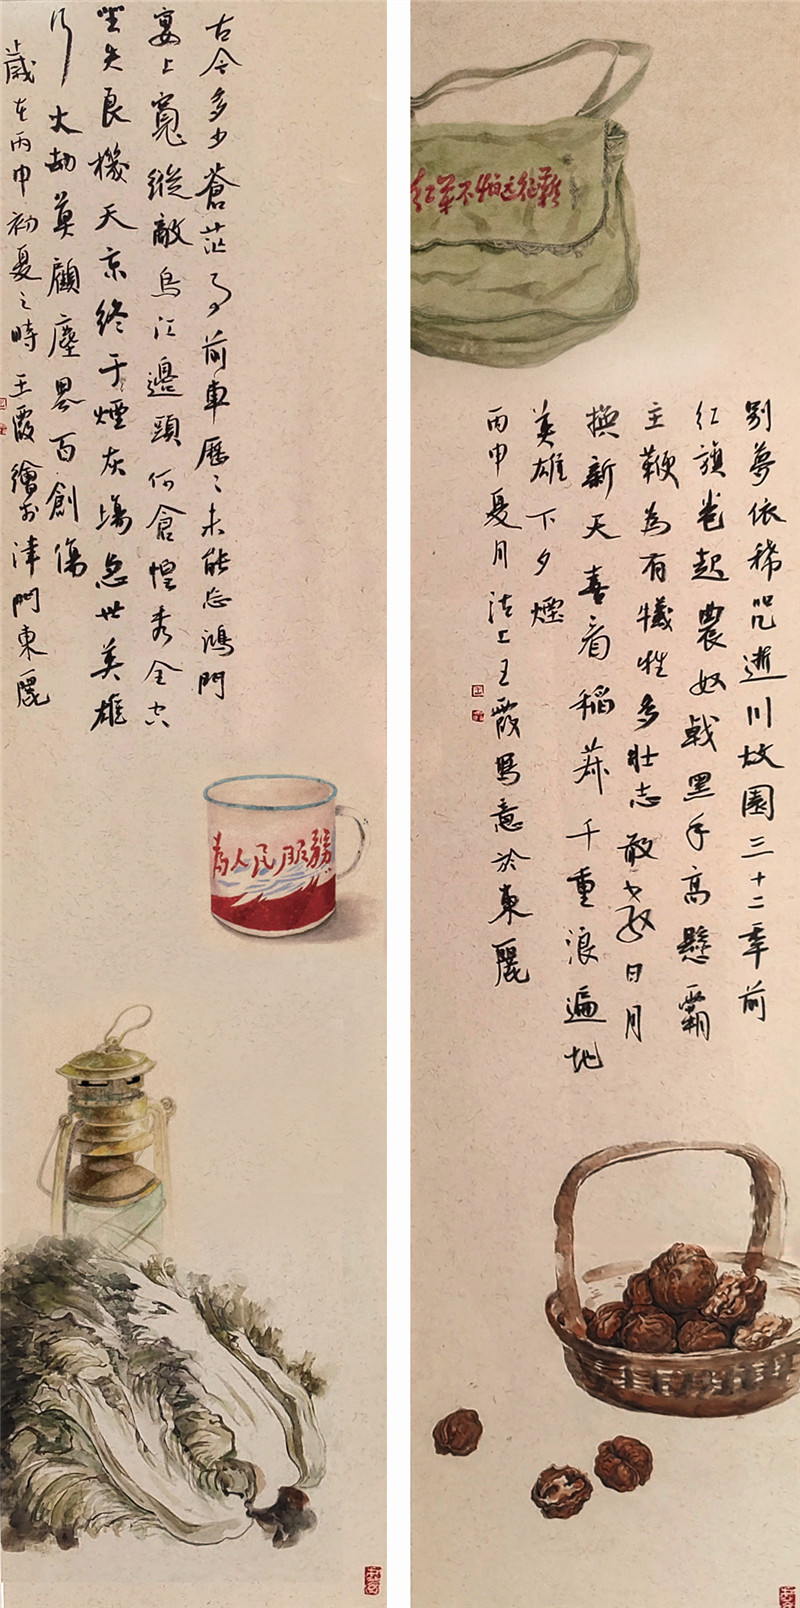 古今多少蒼茫事前車歷〻未能忘鴻門
宴上寬縱敵烏江邊頭何倉惶秀全空
坐失良機天京終于煙灰場急世英雄
行大劫莫顧塵界百創傷
歲在丙申初夏之時王霞繪於津門東麗
為人民服務
红军不怕远征難
別夢依稀咒逝川故園三十二年前
红旗卷起農奴戟黑手高懸霸
主鞭為有犧牲多壯志敢教日月
換新天喜看稻菽千重浪遍地
英雄下夕煙
丙申夏月沽上王霞寫意於東麗